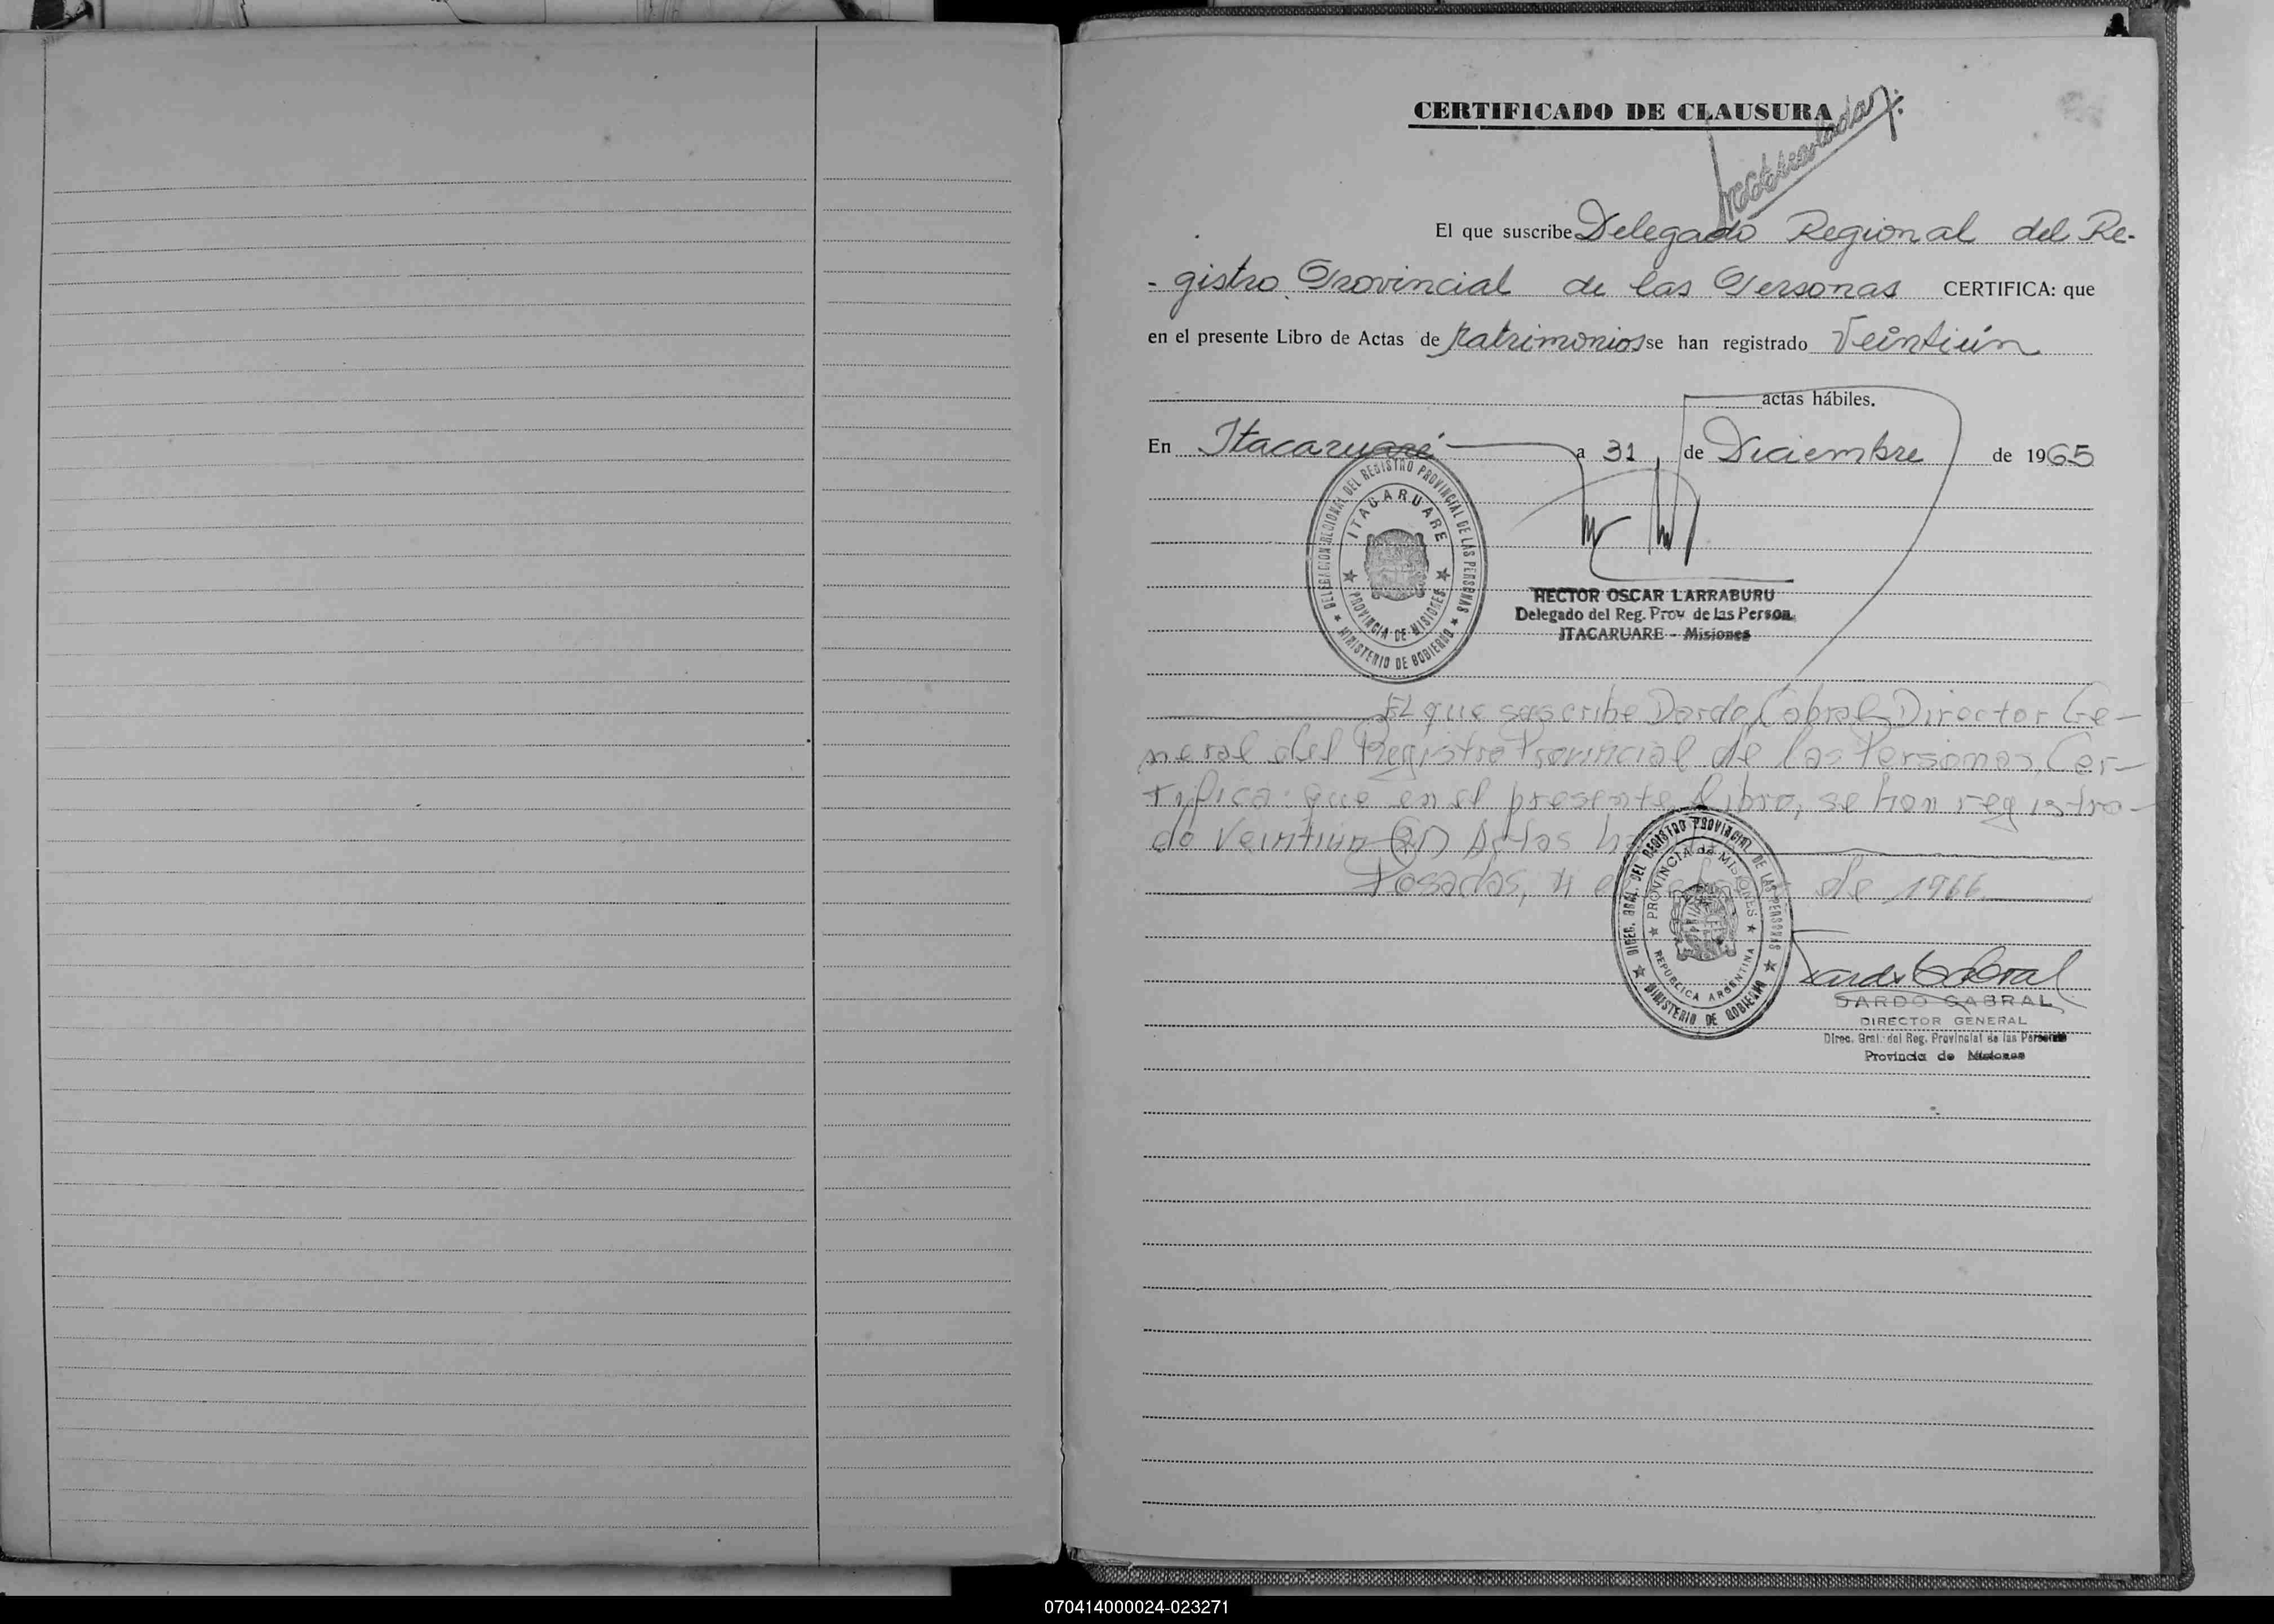 CERTIFICADO DE CLAUSURA
El que suscribe Delegado Regional del Re-
- gistro Provincial de las Personas CERTIFICA: que
en el presente Libro de Actas de Matrimonios se han registrado Veintiún
actas hábiles.
En Itacaruaré a 31 de Diciembre de 1965
DELEGACION REGIONAL DEL REGISTRO PROVINCIAL DE LAS PERSONAS
ITACARUARE
PROVINCIA DE MISIONES
MINISTERIO DE GOBIERNO
HECTOR OSCAR LARRABURU
Delegado del Reg. Prov. de las Person.
ITACARUARE - Misiones
El que suscribe Dardo Cabral Director Ge-
neral del Registro Provincial de las Personas, Cer-
tifica: que en el presente libro, se han registra-
do Veintiun (21) Actas
Posadas, 4 de 1966
DIREC. GRAL. DEL REGISTRO PROVINCIAL DE LAS PERSONAS
PROVINCIA de MISIONES
REPUBLICA ARGENTINA
MINISTERIO DE GOBIERNO
Dardo Cabral
DARDO CABRAL
DIRECTOR GENERAL
Direc. Gral. del Reg. Provincial de las Personas
Provincia de Misiones
070414000024-023271